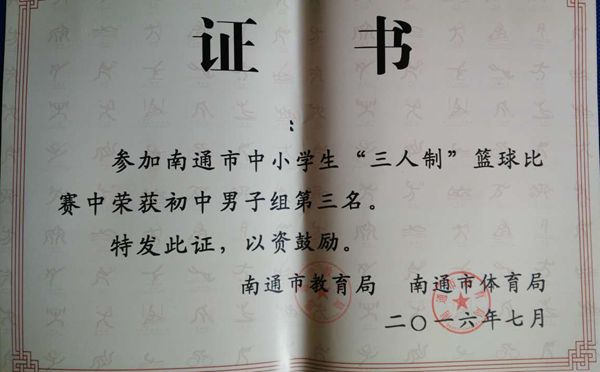 证书
：
参加南通市中小学生“三人制”篮球比
赛中荣获初中男子组第三名。
特发此证，以资鼓励。
南通市教育局 南通市体育局
二〇一六年七月